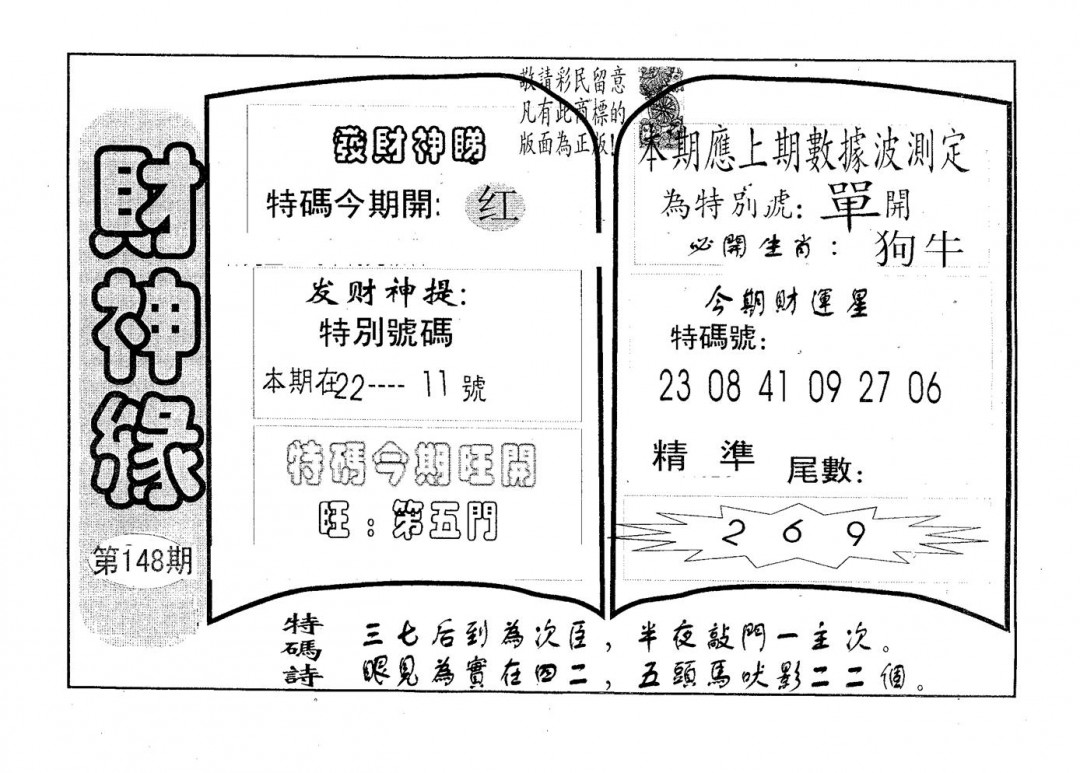 財神緣
第148期
敬請彩民留意
凡有此商標的
版面為正版!
發財神睇
特碼今期開: 红
发财神提:
特別號碼
本期在22----11號
特碼今期旺開
旺:第五門
本期應上期數據波測定
為特別虎:單開
必開生肖:狗牛
今期財運星
特碼號:
23 08 41 09 27 06
精準 尾數:
2 6 9
特碼詩
三七后到為次臣,半夜敲門一主次。
眼見為實在四二,五頭馬吠影二二個。